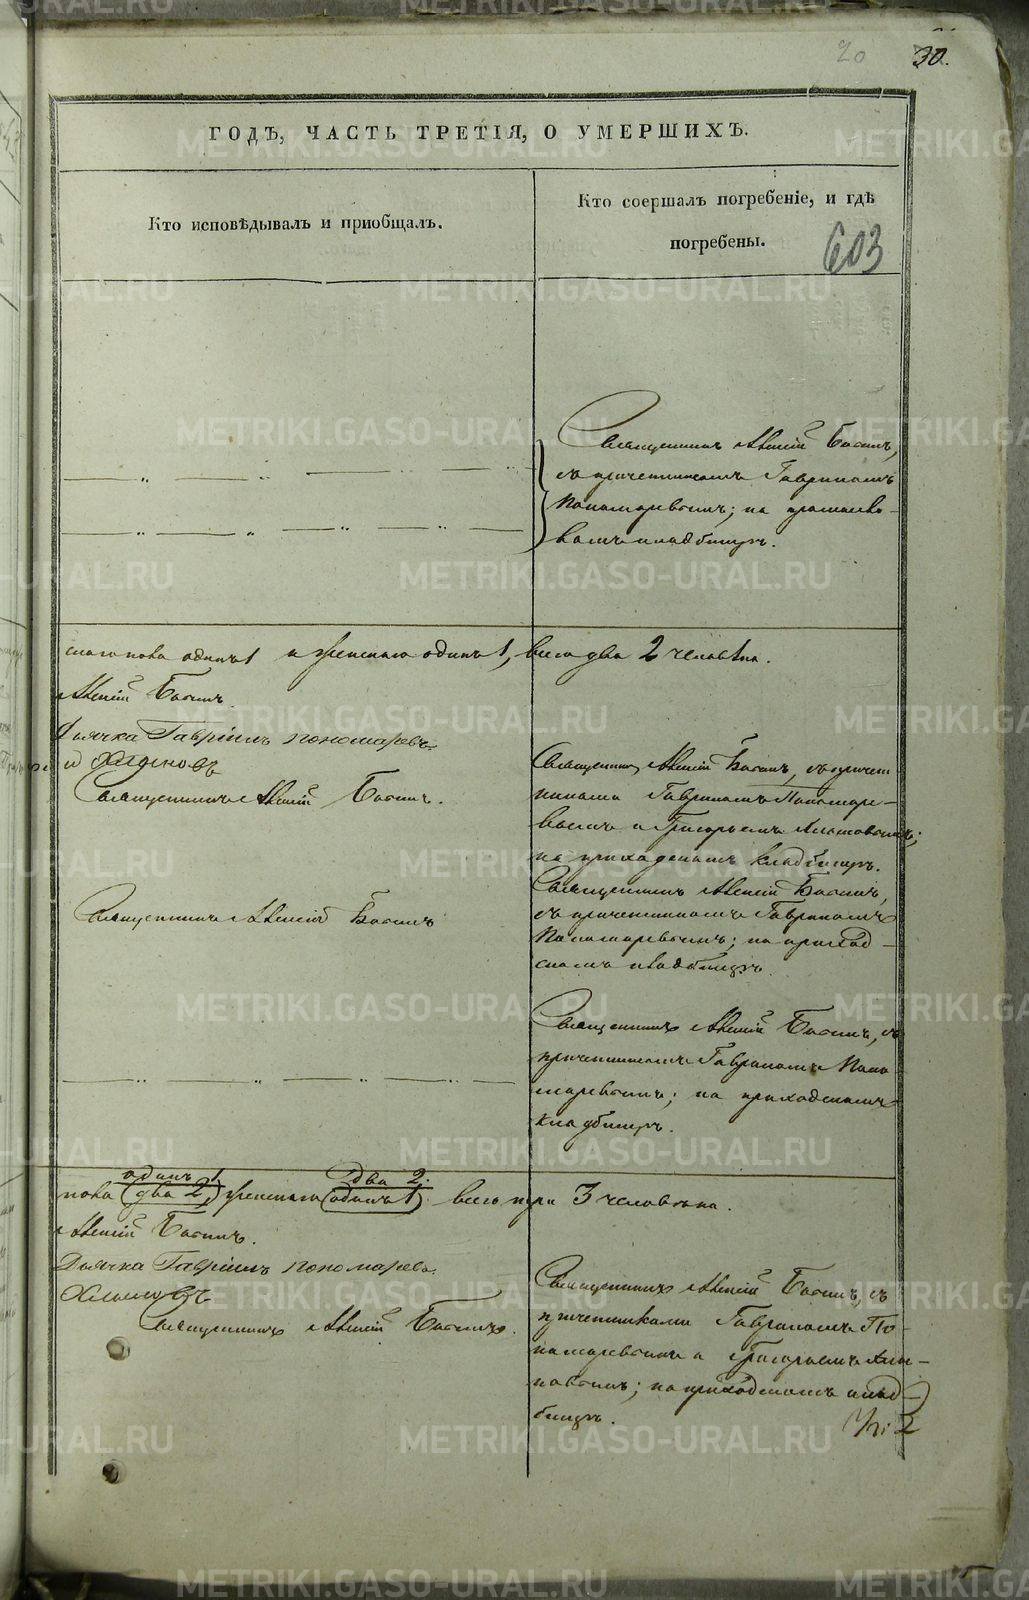 20 30.
ГОДѢ, ЧАСТЬ ТРЕТІЯ, О УМЕРШИХЪ.
Кто исповѣдывалъ и пріобщалъ.
Кто соершалъ погребеніе, и гдѣ
погребены.
603
Священникъ Алексій
съ причетникомъ Гавриломъ
Пономаревымъ; на
кладбищѣ.
пола одинъ 1 и женскаго одинъ 1, всего два 2 человѣка.
Алексій
Дьячка Гавріилъ Пономаревъ
и
Священникъ Алексій
Священникъ Алексій съ причет
никами Гавриломъ Пономаре-
вымъ и Григорьемъ
на приходскомъ кладбищѣ.
Священникъ Алексій
Священникъ Алексій
съ причетникомъ Гавриломъ
Пономаревымъ; на приход-
скомъ кладбищѣ.
Священникъ Алексій съ
причетникомъ Гавриломъ Поно
маревымъ; на приходскомъ
кладбищѣ.
одинъ 1 два 2.
пола (два 2,) женскаго (одинъ 1) всего три 3 человѣка.
Алексій
Дьячка Гавріилъ Пономаревъ
Священникъ Алексій
Священникъ Алексій съ
причетниками Гавриломъ По-
номаревымъ и Григорьемъ
на приходскомъ клад-
бищѣ.
METRIKI.GASO-URAL.RU